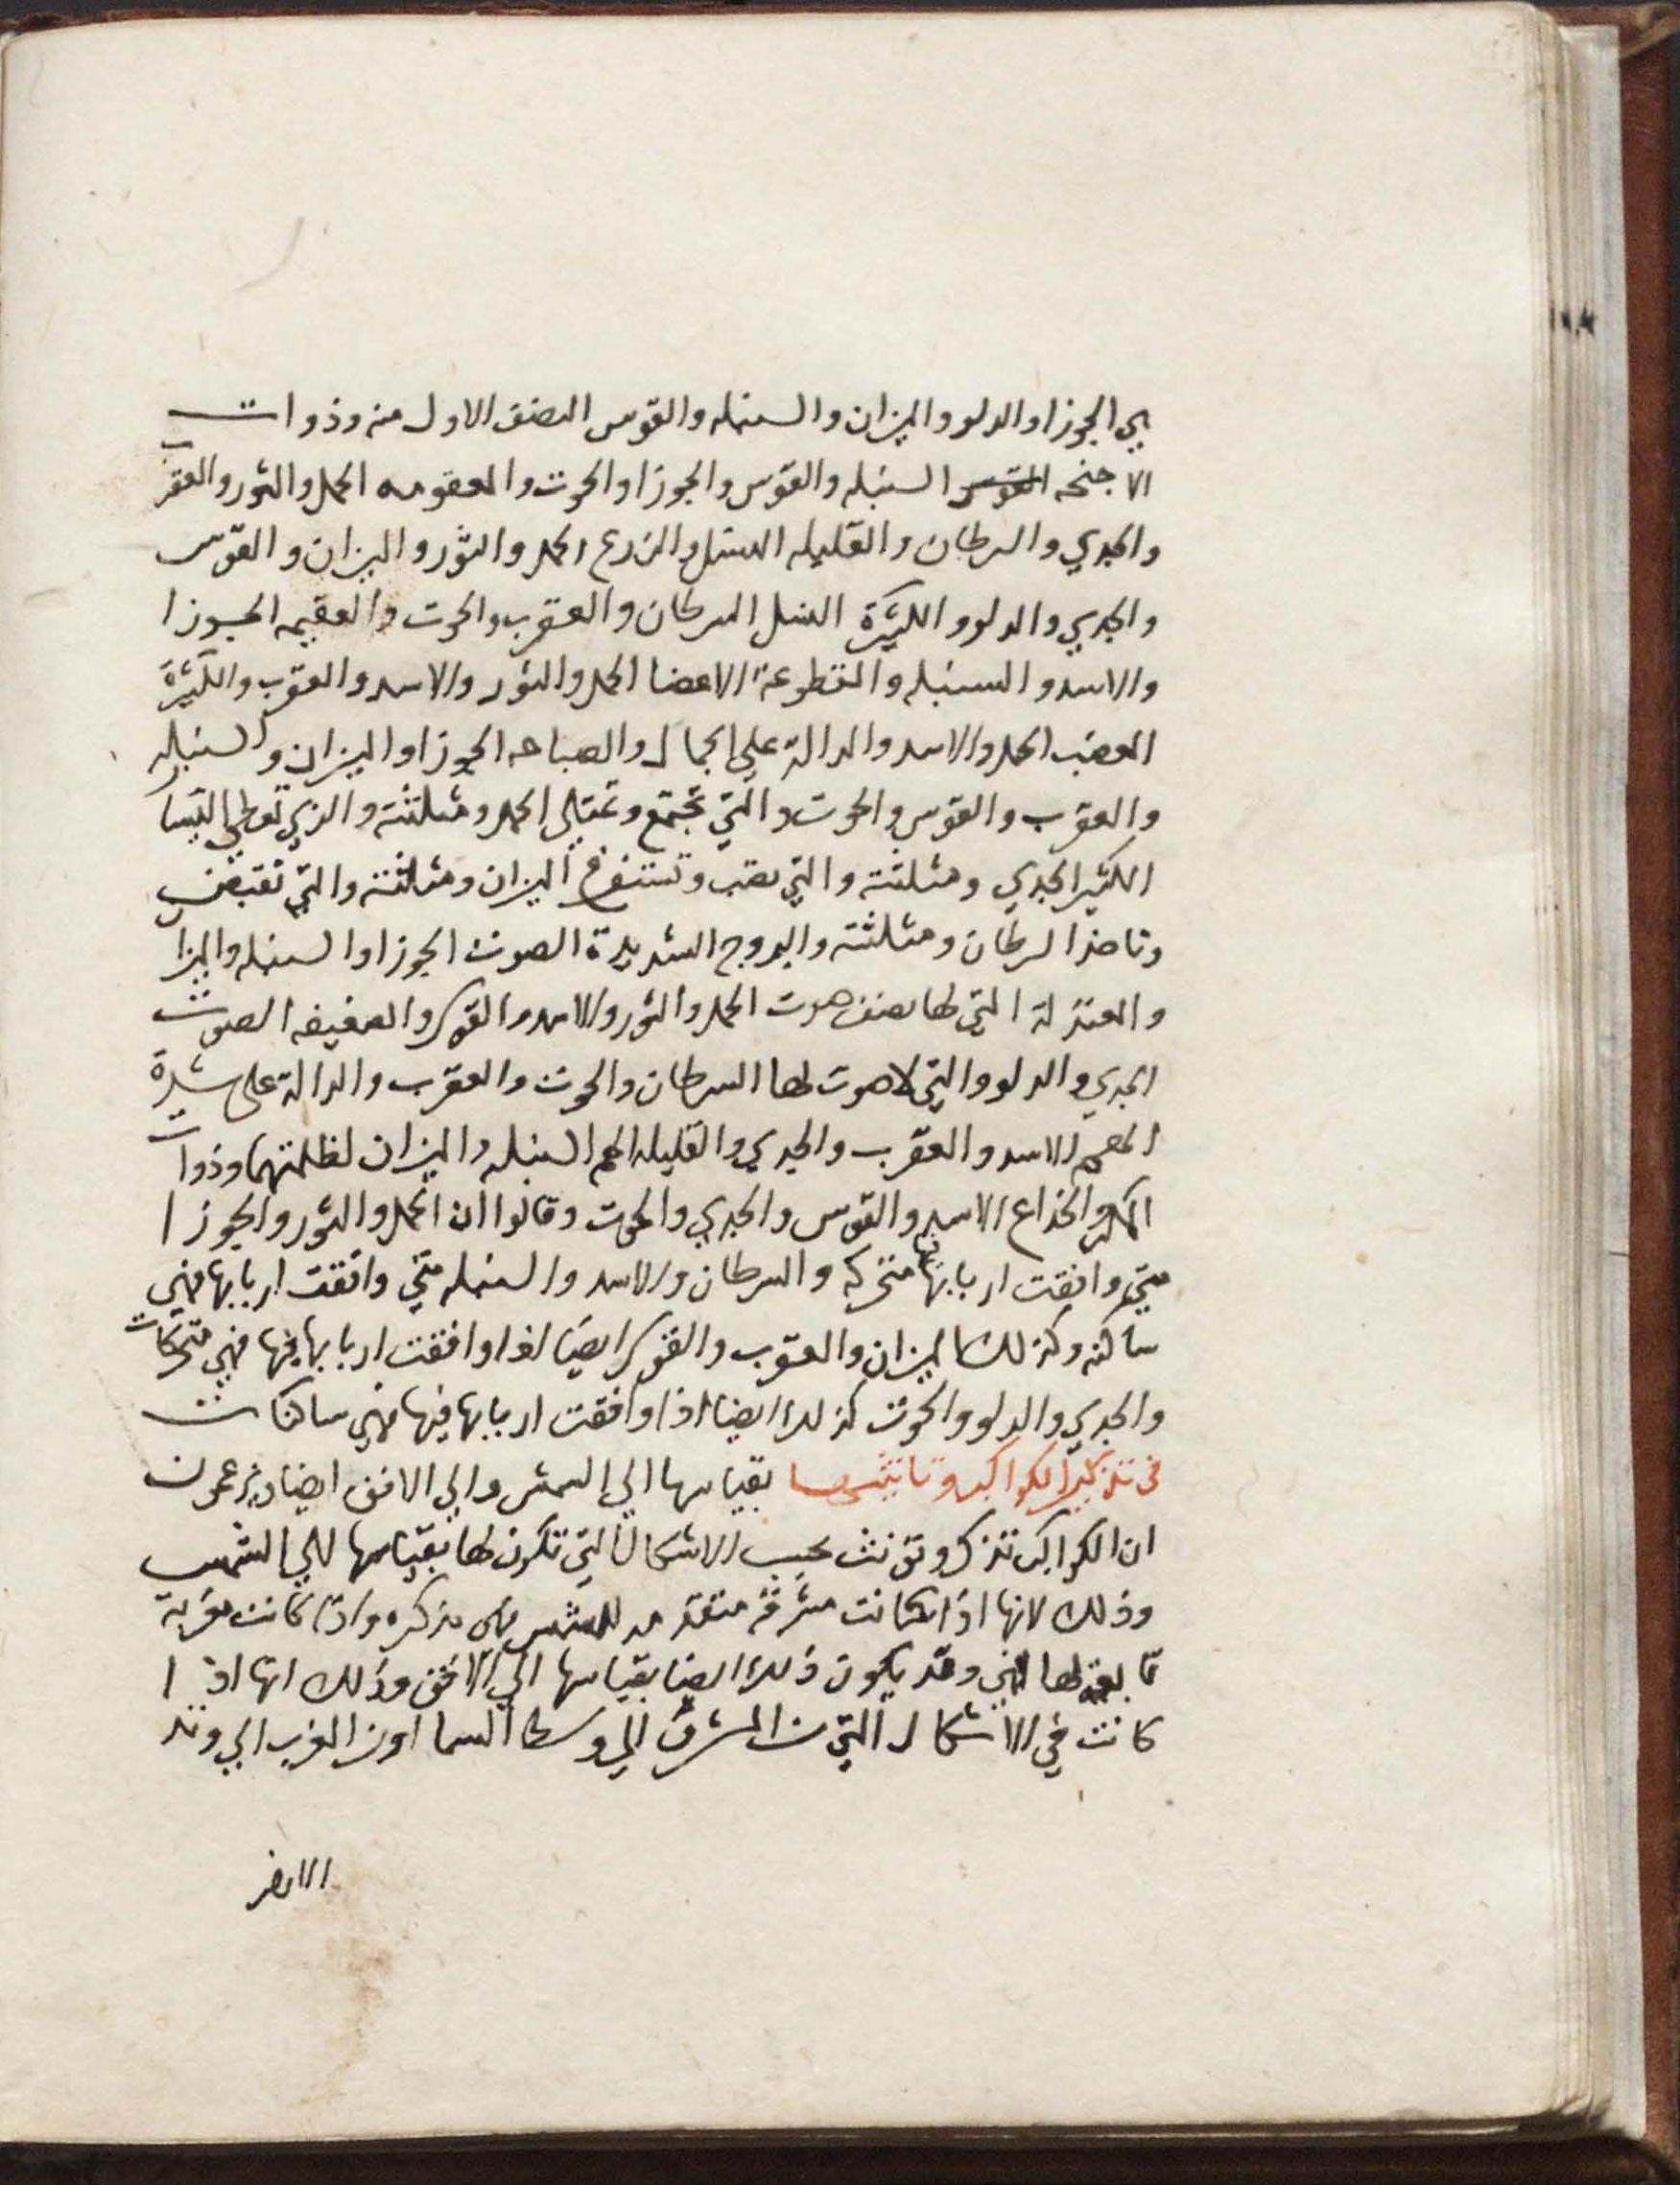 هي الجوزا والدلو والميزان والسنبله والقوس النصف الاول منه وذوات
الاجنحه القوس السنبله والقوس والجوزا والحوت والمعقومه الحمل والثور والعقرب
والجدي والسرطان والقليله النسل والزرع الحمل والثور والميزان والقوس
والجدي والدلو والكثيرة النسل السرطان والعقرب والحوت والعقيمه الجوزا
والاسد والسنبله والمقطوعة الاعضا الحمل والثور والاسد والعقرب والكثيرة
الغضب الحمل والاسد والدالة علي الجمال والصباحه الجوزا والميزان والسنبله
والعقرب والقوس والحوت والتي تجتمع وتمتلي الحمل ومثلثته والذي تعطي
الكثير الجدي ومثلثته والتي تهب وتستفرغ الميزان ومثلثته والتي تقبض
وتاخذ السرطان ومثلثته والبروج الشديدة الصوت الجوزا والسنبله والميزا
والمعتدلة التي لها نصف صوت الحمل والثور والاسد والقوس والضعيفه الصوت
الجدي والدلو والتي لا صوت لها السرطان والحوت والعقرب والدالة على شدة
الاسد والعقرب والجدي والقليله السنبله والميزان لظلمتهما وذوات
المكر والخداع الاسد والقوس والجدي والحوت وقالوا ان الحمل والثور والجوزا
متي وافقت اربابها فيها متحركه والسرطان والاسد والسنبله متي وافقت اربابها فهي
ساكنه وكذلك الميزان والعقرب والقوس ايضا اذا وافقت اربابها فيها فهي متحركات
والجدي والدلو والحوت كذلك ايضا اذا وافقت اربابها فيها فهي ساكنات
في تذكير الكواكب وتانيثها بقياسها الي الشمس والي الافق ايضا ويزعمون
ان الكواكب تذكر وتونث بحسب الاشكال التي تكون لها بقياسها الي الشمس
وذلك لانها اذا كانت مشرقة متقدمه للشمس فهي مذكره واذا كانت مغربة
تابعة لها وقد يكون ذلك ايضا بقياسها الي الافق وذلك انها اذا
كانت في الاشكال التي من المشرق الي وسط السما او من الغرب الي وتد
الارض